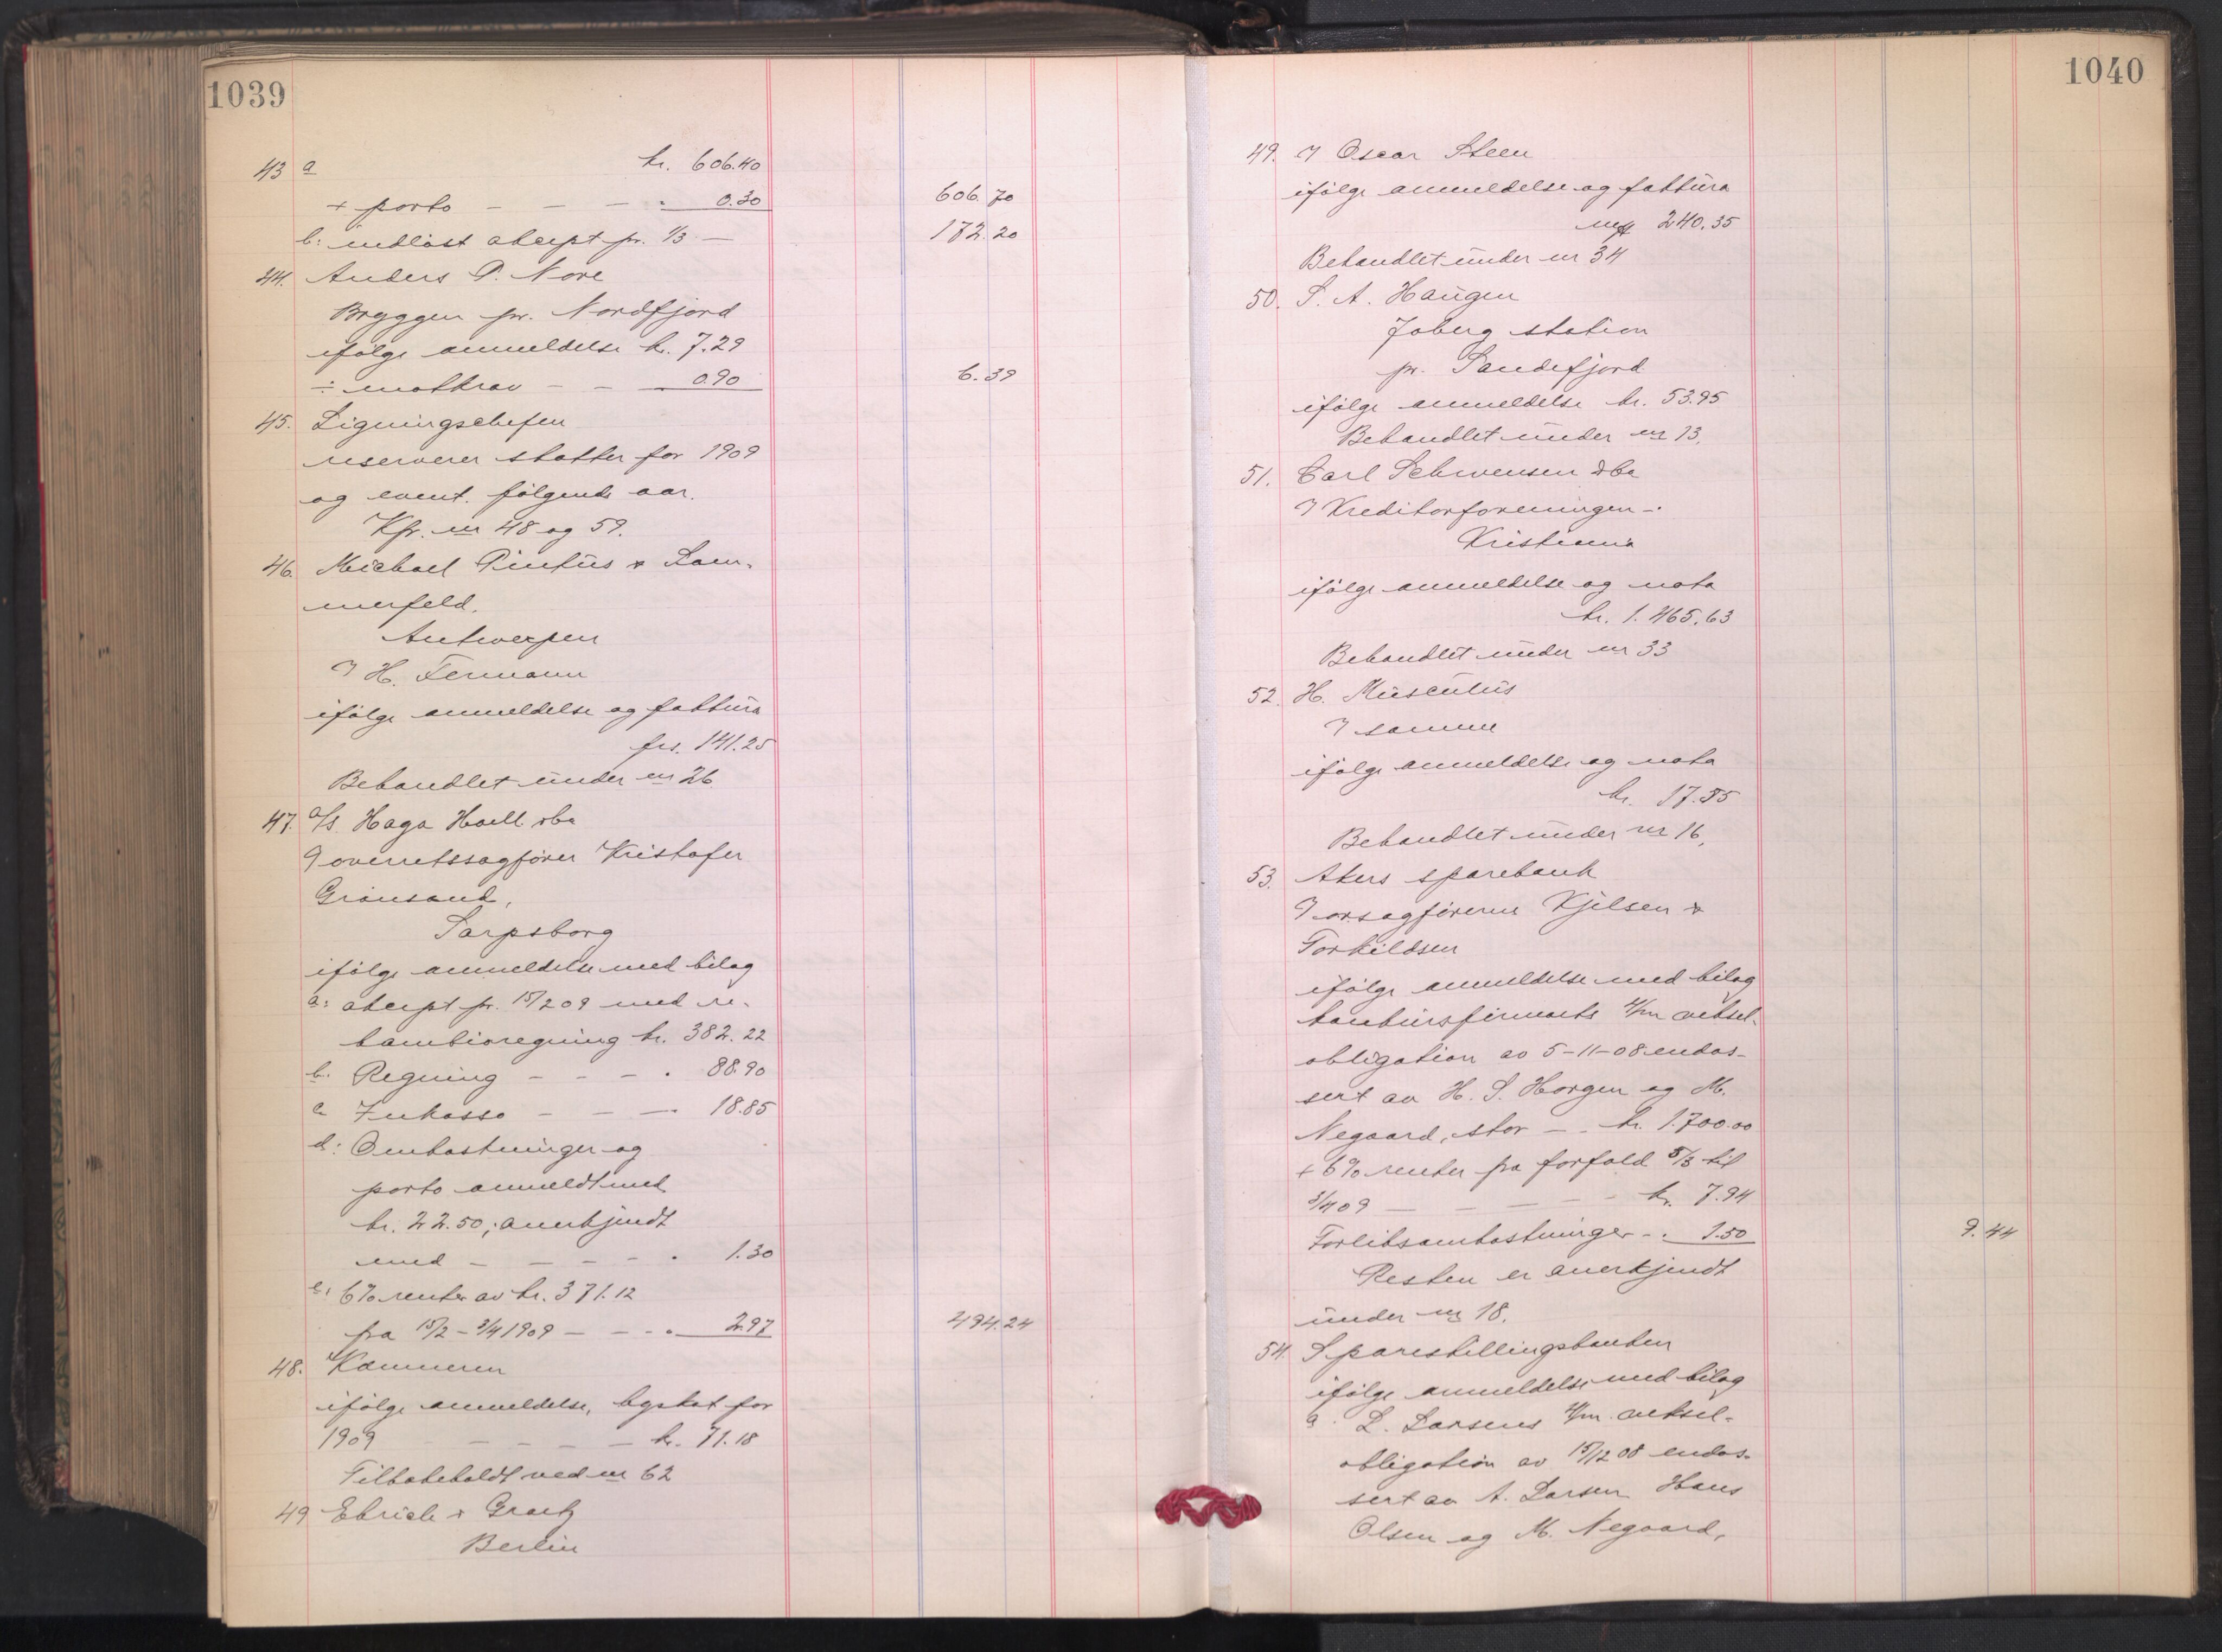 1039
43 a kr. 606.40
+ porto - - - . 0.30 606.70
b: indløst aksept pr. 1/3 - 172.20
44. Anders P. Nore
Bryggen pr. Nordfjord
ifølge anmeldelse kr. 7.29
÷ motkrav - - 0.90 6.39
45. Ligningschefen
reserverer skatter for 1909
og event. følgende aar.
Kfr. nr 48 og 59.
46. Michael Pintus & Lom-
merfeld.
Antwerpen
v/ H. Fermann
ifølge anmeldelse og faktura
frs. 141.25
Behandlet under nr 26
47. A/S. Haga Hoell dba
v/ overretssagfører Kristofer
Grønsand,
Sarpsborg
ifølge anmeldelse med bilag
a: aksept pr. 15/2 09 med re-
kambioregning kr. 382.22
b. Regning - - - . 88.90
c Inkasso - - - . 18.85
d: Omkostninger og
porto anmeldt med
kr. 22.50; anerkjendt
med - - - - . 1.30
e: 6% renter av kr. 371.12
fra 15/2 - 3/4 1909 - - - . 2.97 494.24
48. Kæmneren
ifølge anmeldelse, byskat for
1909 - - - - kr. 71.18
Tilbakeholdt ved nr 62
49 Ehrich & Graetz
Berlin
1040
49. v/ Oscar Steen
ifølge anmeldelse og faktura
mk 240.35
Behandlet under nr 34
50. S. A. Haugen
Joberg station
pr. Sandefjord
ifølge anmeldelse kr. 53.95
Behandlet under nr 13.
51. Carl Schwensen dba
v/ Kreditorforeningen -.
Kristiania
ifølge anmeldelse og nota
kr. 1.465.63
Behandlet under nr 33
52. H. Musculus
v/ samme
ifølge anmeldelse og nota
kr. 17.55
Behandlet under nr 16.
53. Akers sparebank
v/ orsagførerne Kjelsen &
Torkildsen
ifølge anmeldelse med bilag
konkursfirmaets 4/m veksel-
obligation av 5-11-08 endos-
sert av H. S. Horgen og M.
Negaard, stor - - kr. 1.700.00
+ 6% renter fra forfald 5/3 til
3/4 09 - - - - kr. 7.94
Forliksomkostninger - . 1.50 9.44
Resten er anerkjendt
under nr 18.
54. Spareskillingsbanken
ifølge anmeldelse med bilag
a. L. Larsens 4/m veksel-
obligation av 15/12 08 endos-
sert av A. Larsen Hans
Olsen og M. Negaard,